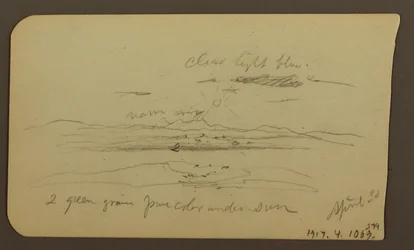 clear light blue.
warm
2
2 green grain pure color under sun
April 23
1917.4.1069